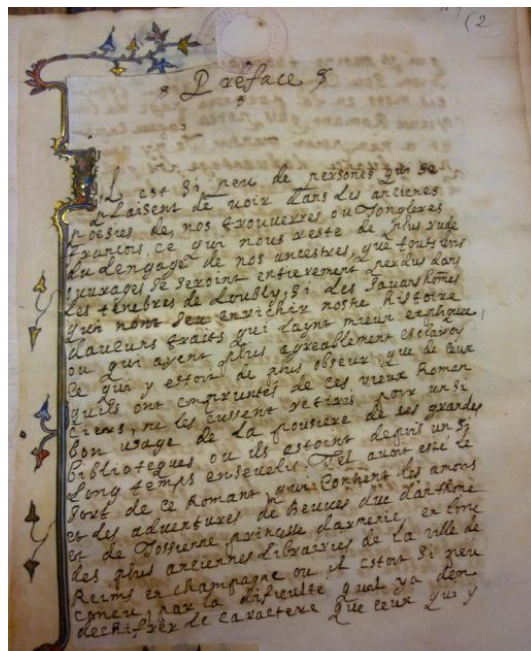 (2
Preface
Il est si peu de persones qui se
plaisent de uoir dans les anciene
poesies de nos trouuerres ou Jongleres
francois ce qui nous reste de plus rude
du Lengage de nos ancestres, que touts
ouurages se seroint entierement perdus dans
les tenebres de Loubly, si les sauanshomes
qui nont seu enrichir nostre histoire
daucuns traits qui laynt mieux expliquee,
ou qui ayent plus agreablement esclairci
ce qui y estoit de plus obscur, que de ceux
quils ont empruntés de ces vieux Roman
ciers, ne les eussent retirés pour un si
bon usage de la pousiere de ses grandes
biblioteques ou ils estoint depuis un si
long temps enseuelis. Tel auoit esté le
sort de ce Romant qui Contient les amours
et des aduentures de Beuues duc danthone
et de Jossienne princesse darmenie, en lune
des plus anciennes Librairies de la ville de
Reims en champagne ou il estoit si peu
coneu, par la dificulté quil ya den
dechifrer le caractere que ceux qui y